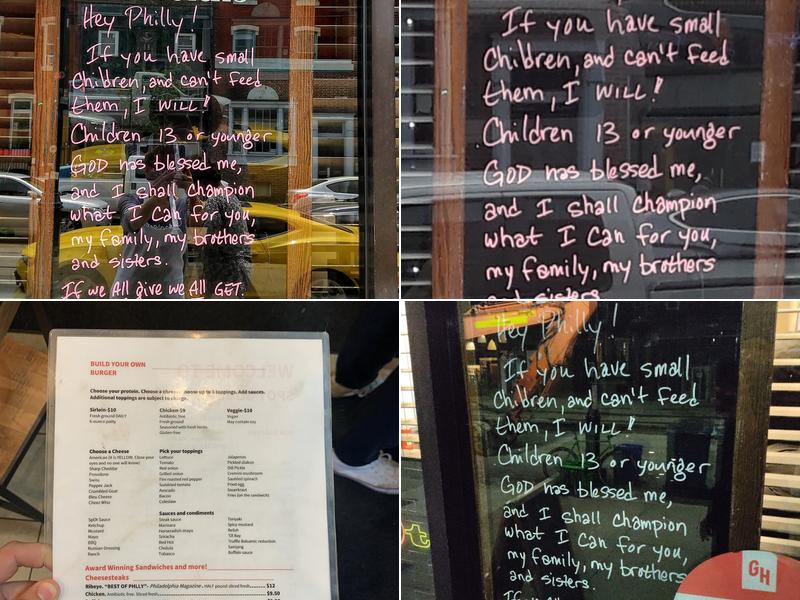 Hey Philly!
If you have small
Children, and can't feed
them, I WILL!
Children 13 or younger
GOD has blessed me,
and I shall champion
what I Can for you,
my family, my brothers
and sisters.
If we All give we All GET.
If you have small
Children, and can't feed
them, I WILL!
Children 13 or younger
GOD has blessed me,
and I shall champion
what I Can for you,
my family, my brothers
sisters
BUILD YOUR OWN
BURGER
Choose your protein. Choose a cheese. Choose up to 3 toppings. Add sauces.
Additional toppings are subject to charge.
Sirloin-$10 Chicken-$9 Veggie-$10
Fresh ground DAILY Antibiotic free Vegan
6-ounce patty Fresh ground May contain soy
Seasoned with fresh herbs
Gluten-free
Choose a Cheese Pick your toppings
American (it is YELLOW. Close your Lettuce Jalapenos
eyes and no one will know) Tomato Pickled daikon
Sharp Cheddar Red onion Dill Pickle
Provolone Grilled onion Cremini mushroom
Swiss Fire roasted red pepper Sautéed spinach
Pepper Jack Sundried tomato Fried egg
Crumbled Goat Avocado Sauerkraut
Bleu Cheese Bacon Fries (on the sandwich)
Chez Whiz Coleslaw
Sauces and condiments
SpOt Sauce Steak sauce Teriyaki
Ketchup Marinara Spicy mustard
Mustard Horseradish mayo Relish
Mayo Sriracha
BBQ Red Hot Truffle Balsamic reduction
Russian Dressing Cholula Samjang
Ranch Tabasco Buffalo sauce
Award Winning Sandwiches and more!
Cheesesteaks
Ribeye. "BEST OF PHILLY"- Philadelphia Magazine. HALF pound sliced fresh $12
Chicken. Antibiotic free. Sliced fresh $9.50
Hey Philly!
If you have small
Children, and can't feed
them, I WILL!
Children 13 or younger
GOD has blessed me,
and I shall champion
what I Can for you,
my family, my brothers
and sisters.
GH